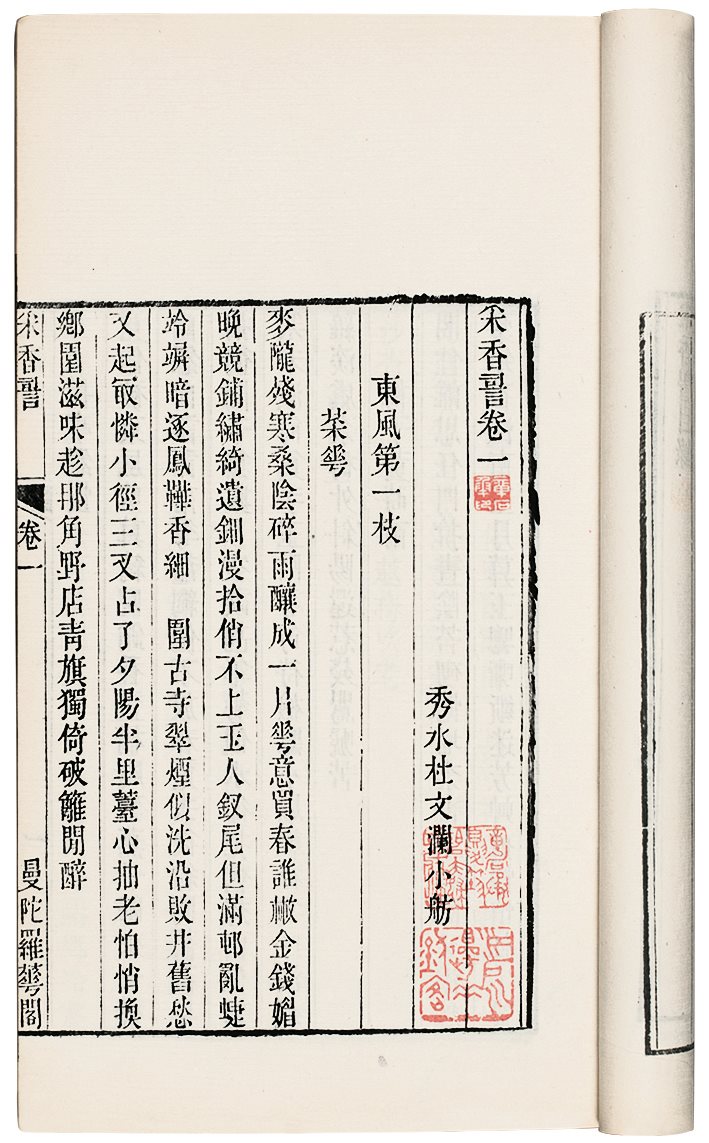 采香䛐卷一
秀水杜文瀾小舫
東風第一枝
菜華
麥隴殘寒桑陰碎雨釀成一片華意買春誰撇金錢媚
晚競鋪繡綺遺鈿漫拾俏不上玉人釵尾但滿邨亂蜨
竛竮暗逐鳳鞾香細　圍古寺翠煙似洗沿敗井舊愁
又起冣憐小徑三叉占了夕陽半里薹心抽老怕悄換
鄉園滋味趁那角野店靑旗獨倚破籬閒醉
采香䛐
卷一
曼陀羅華閣